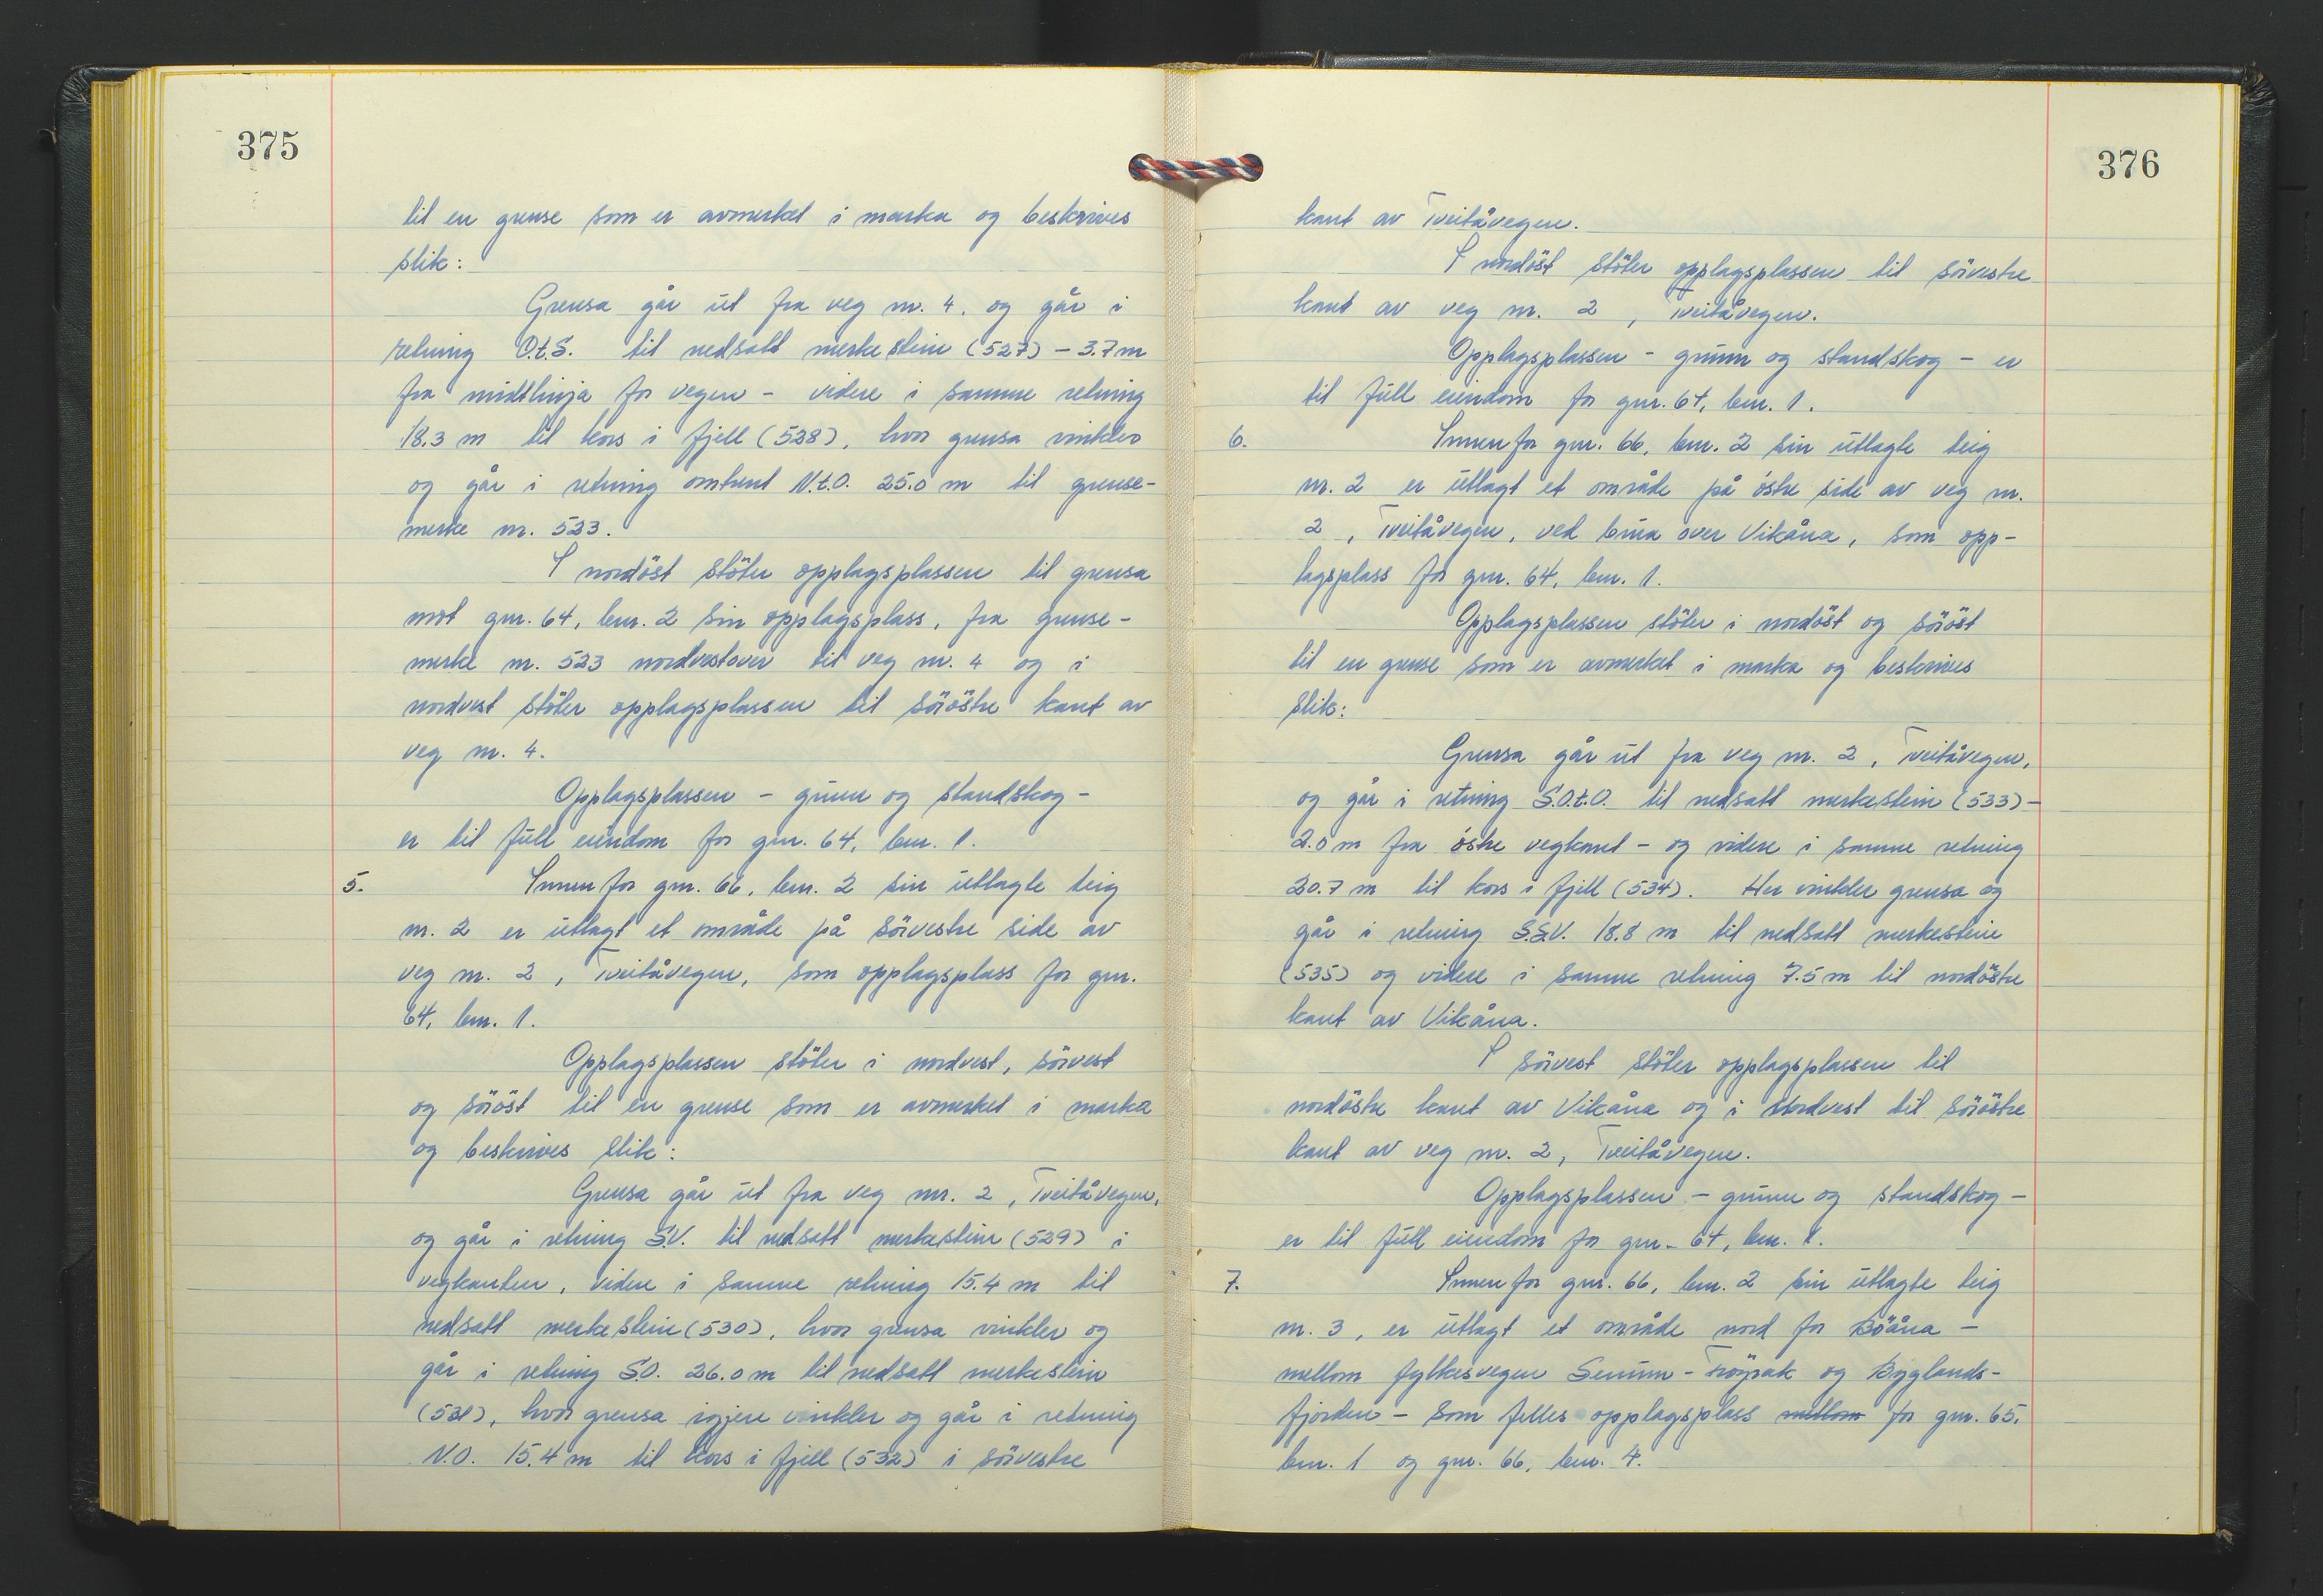 375
til en grense som er avmerket i marka og beskrives
slik:
Grensa går ut fra veg nr. 4. og går i
retning O.t.S. til nedsatt merkestein (527) - 3.7 m
fra midtlinja for vegen - videre i samme retning
18.3 m til kors i fjell (528), hvor grensa vinkler
og går i retning omtrent N.t.O. 25.0 m til grense-
merke nr. 523.
I nordöst stöter opplagsplassen til grensa
mot gnr. 64, bnr. 2 sin opplagsplass, fra grense-
merke nr. 523 nordvestover til veg nr. 4 og i
nordvest stöter opplagsplassen til söröstre kant av
veg nr. 4.
Opplagsplassen - grunn og standskog -
er til full eiendom for gnr. 64, bnr. 1.
5. Innenfor gnr. 66, bnr. 2 sin utlagte teig
nr. 2 er utlagt et område på sörvestre side av
veg nr. 2, Tveitåvegen, som opplagsplass for gnr.
64, bnr. 1.
Opplagsplassen stöter i nordvest, sörvest
og söröst til en grense som er avmerket i marka
og beskrives slik:
Grensa går ut fra veg nr. 2, Tveitåvegen,
og går i retning S.V. til nedsatt merkestein (529) i
vegkanten, videre i samme retning 15.4 m til
nedsatt merkestein (530), hvor grensa vinkler og
går i retning S.O. 26.0 m til nedsatt merkestein
(531), hvor grensa igjen vinkler og går i retning
N.O. 15.4 m til kors i fjell (532) i sörvestre
376
kant av Tveitåvegen.
I nordöst stöter opplagsplassen til sörvestre
kant av veg nr. 2, Tveitåvegen.
Opplagsplassen - grunn og standskog - er
til full eiendom for gnr. 64, bnr. 1.
6. Innenfor gnr. 66, bnr. 2 sin utlagte teig
nr. 2 er utlagt et område på östre side av veg nr.
2, Tveitåvegen, ved brua over Vikåna, som opp-
lagsplass for gnr. 64, bnr. 1.
Opplagsplassen stöter i nordöst og söröst
til en grense som er avmerket i marka og beskrives
slik:
Grensa går ut fra veg nr. 2, Tveitåvegen,
og går i retning S.O.t.O. til nedsatt merkestein (533) -
2.0 m fra östre vegkant - og videre i samme retning
20.7 m til kors i fjell (534). Her vinkler grensa og
går i retning S.S.V. 18.8 m til nedsatt merkestein
(535) og videre i samme retning 7.5 m til nordöstre
kant av Vikåna.
I sörvest stöter opplagsplassen til
nordöstre kant av Vikåna og i nordvest til söröstre
kant av veg nr. 2, Tveitåvegen.
Opplagsplassen - grunn og standskog -
er til full eiendom for gnr. 64, bnr. 1.
7. Innenfor gnr. 66, bnr. 2 sin utlagte teig
nr. 3, er utlagt et område nord for Böåna -
mellom fylkesvegen Senum - Fröyrak og Byglands-
fjorden - som felles opplagsplass mellom for gnr. 65,
bnr. 1 og gnr. 66, bnr. 4.